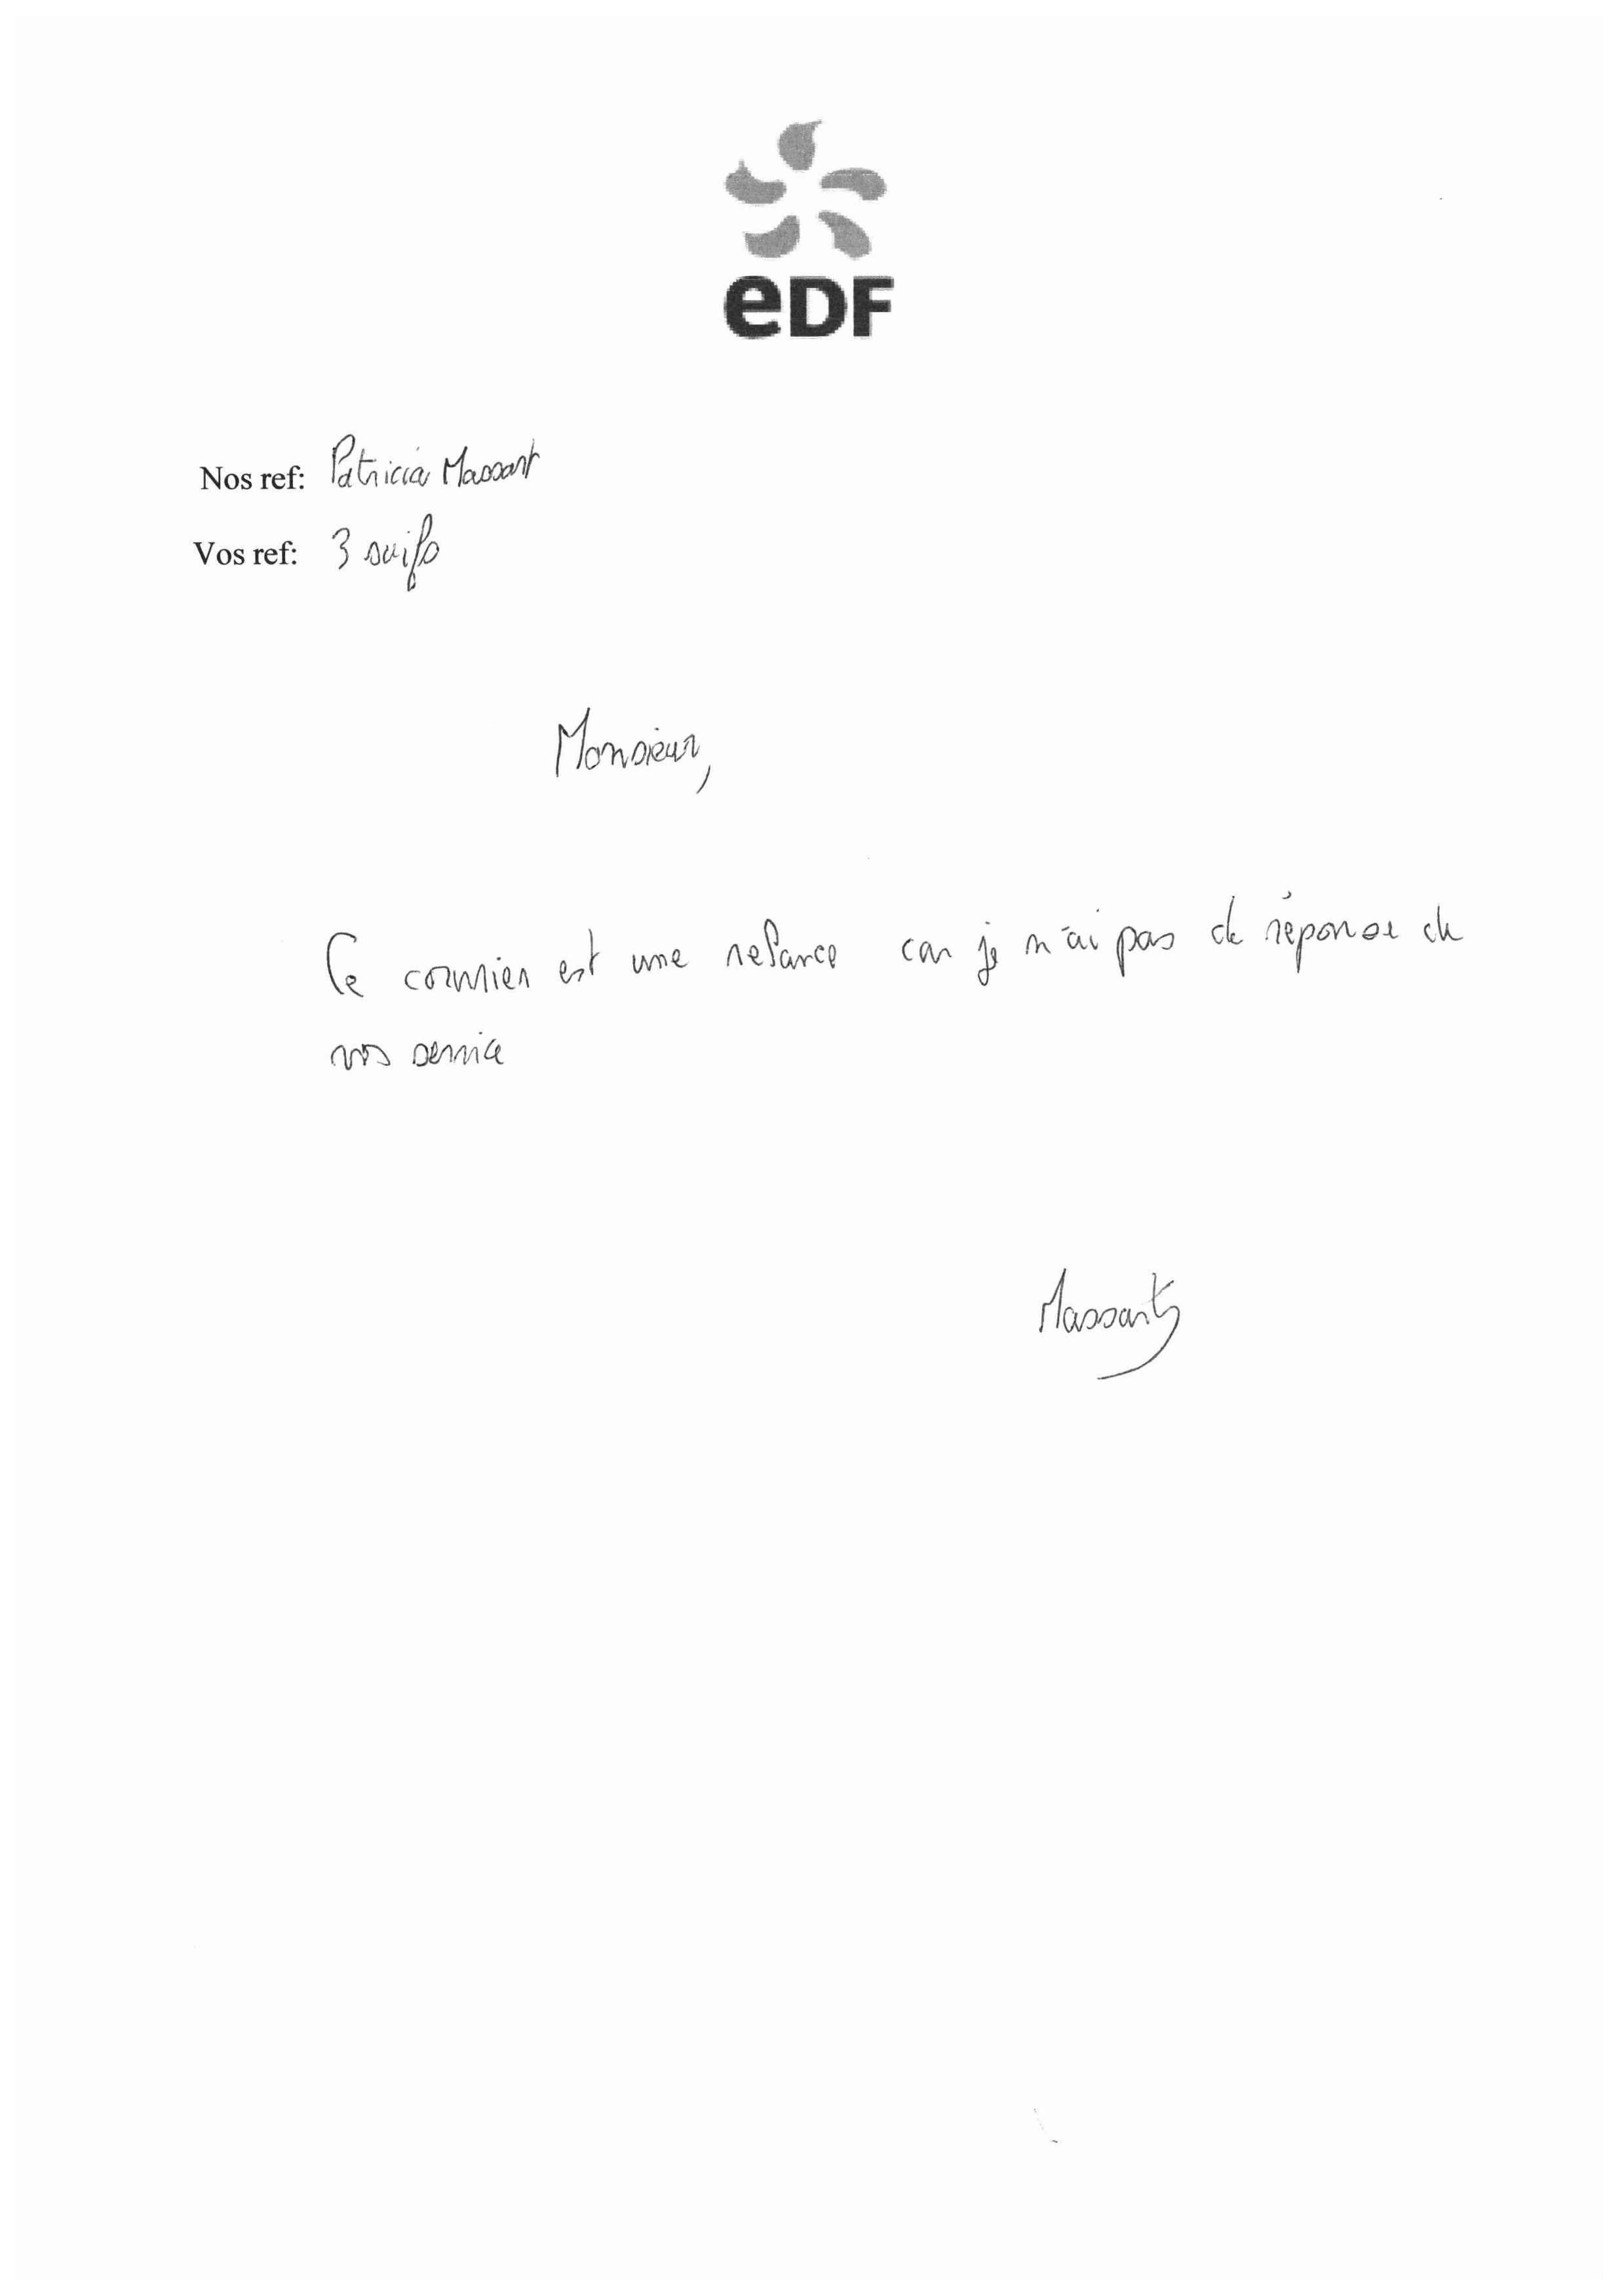 eDF
Nos ref: Patricia Massart
Vos ref: 3 suifs
Monsieur,
Ce courrier est une relance car je n'ai pas de réponse de
vos service
Massart